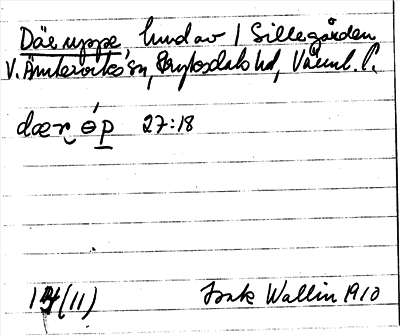 Där uppe, hmd av 1 Sillegården
V. Ämtervik sn, Fryksdals hd, Värml. l.
dær ɵp 27:18
14(11) Isak Wallin 1910